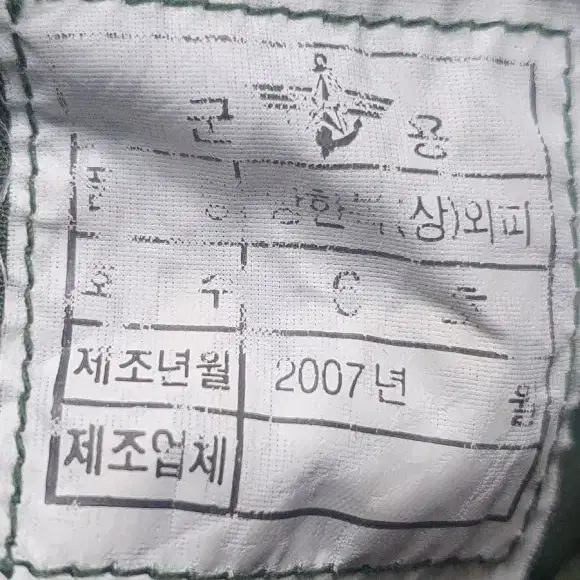 군 용
품 명 방한복(상)외피
호 수 6 호
제조년월 2007년 월
제조업체